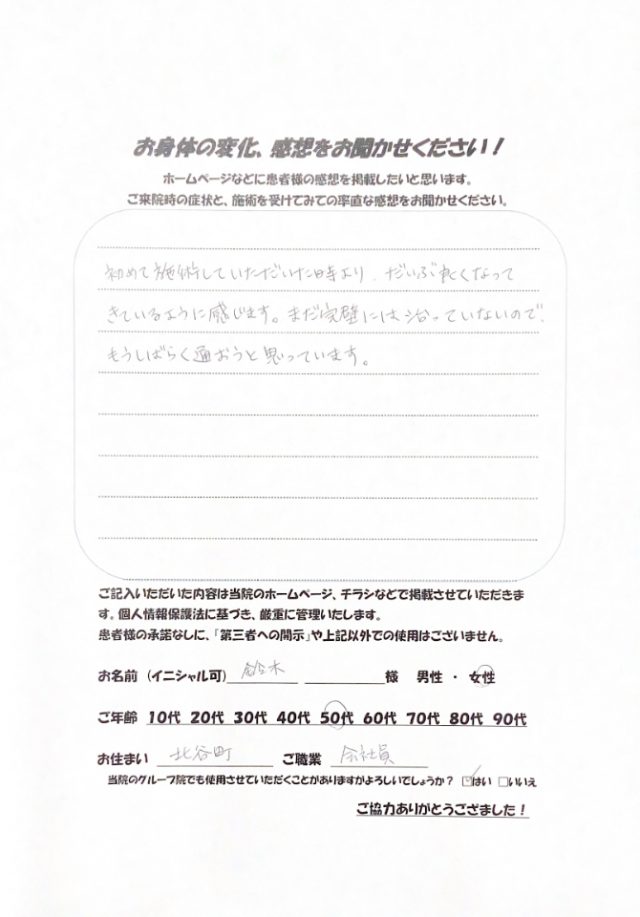 お身体の変化、感想をお聞かせください！
ホームページなどに患者様の感想を掲載したいと思います。
ご来院時の症状と、施術を受けてみての率直な感想をお聞かせください。
初めて施術していただいた時より、だいぶ良くなって
きているように感じます。まだ完璧には治っていないので、
もうしばらく通おうと思っています。
ご記入いただいた内容は当院のホームページ、チラシなどで掲載させていただきま
す。個人情報保護法に基づき、厳重に管理いたします。
患者様の承諾なしに、「第三者への開示」や上記以外での使用はございません。
お名前（イニシャル可） 鈴木 様 男性 ・ 女性
ご年齢 10代 20代 30代 40代 50代 60代 70代 80代 90代
お住まい 北谷町 ご職業 会社員
当院のグループ院でも使用させていただくことがありますがよろしいでしょうか？ ☑はい □いいえ
ご協力ありがとうござました！